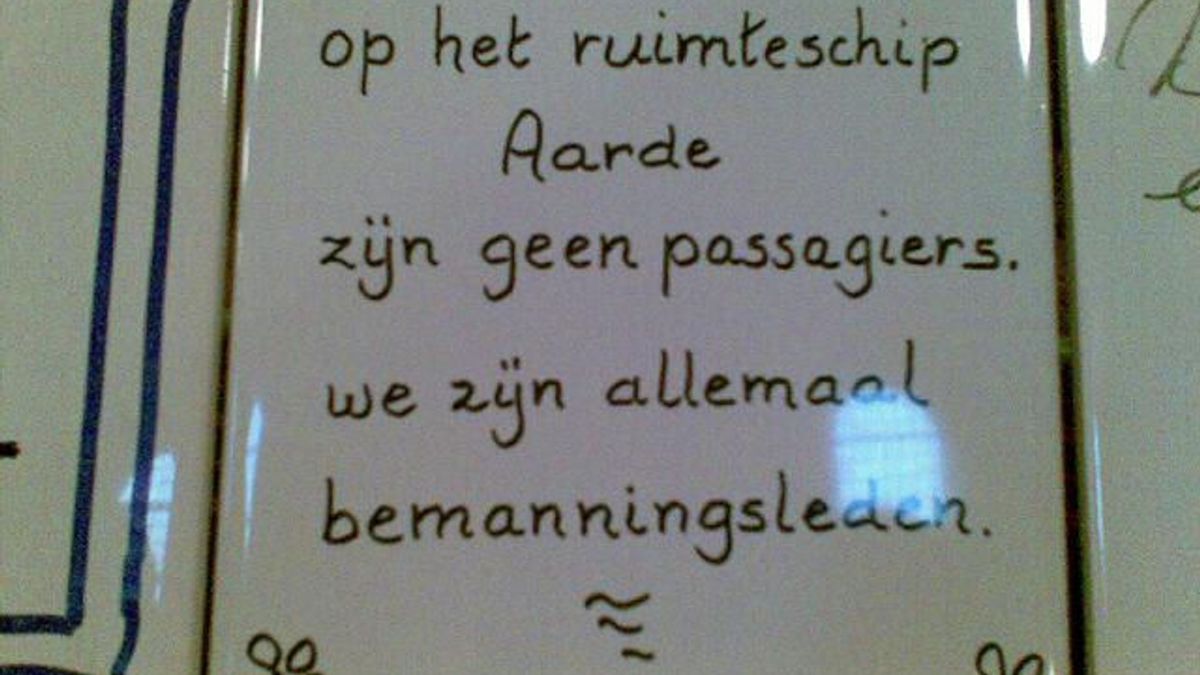 op het ruimteschip
Aarde
zijn geen passagiers.
we zijn allemaal
bemanningsleden.